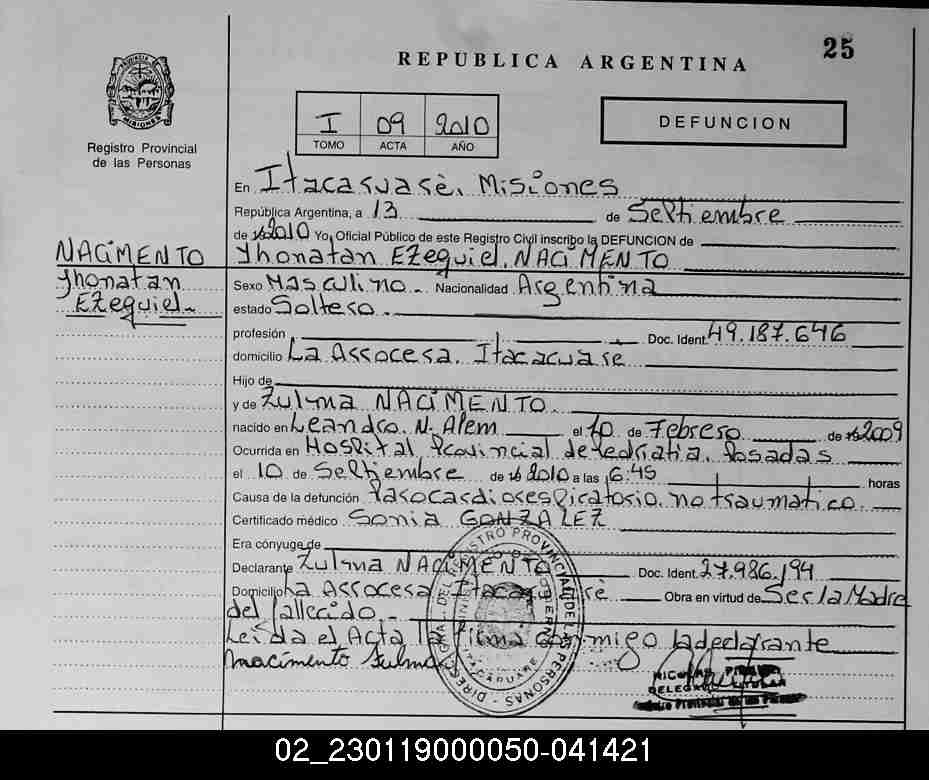 25
REPUBLICA ARGENTINA
PROVINCIA DE MISIONES
Registro Provincial
de las Personas
I 09 2010
TOMO ACTA AÑO
DEFUNCION
En Itacaruaré. Misiones
República Argentina, a 13 de Septiembre
de 2010 Yo, Oficial Público de este Registro Civil inscribo la DEFUNCION de
NACIMENTO
Jhonatan
Ezequiel.
Jhonatan Ezequiel. NACIMENTO
Sexo Masculino. Nacionalidad Argentina
estado Soltero.
profesión Doc. Ident. 49.187.646
domicilio La Arrocera. Itacacuare
Hijo de
y de Zulma NACIMENTO.
nacido en Leandro. N. Alem el 10 de Febrero de 2009
Ocurrida en Hospital Provincial de Pediatria. Posadas
el 10 de Septiembre de 2010 a las 6:45 horas
Causa de la defunción Parocardiorespiratorio. no traumatico.
Certificado médico Sonia GONZALEZ
Era cónyuge de
Declarante Zulma NACIMENTO Doc. Ident. 27.986.194
Domicilio La Arrocera Obra en virtud de Ser la Madre
del fallecido
Leida el Acta la firma conmigo la declarante
Nacimento Zulma
DIRECCION DEL REGISTRO PROVINCIAL DE LAS PERSONAS
02_230119000050-041421